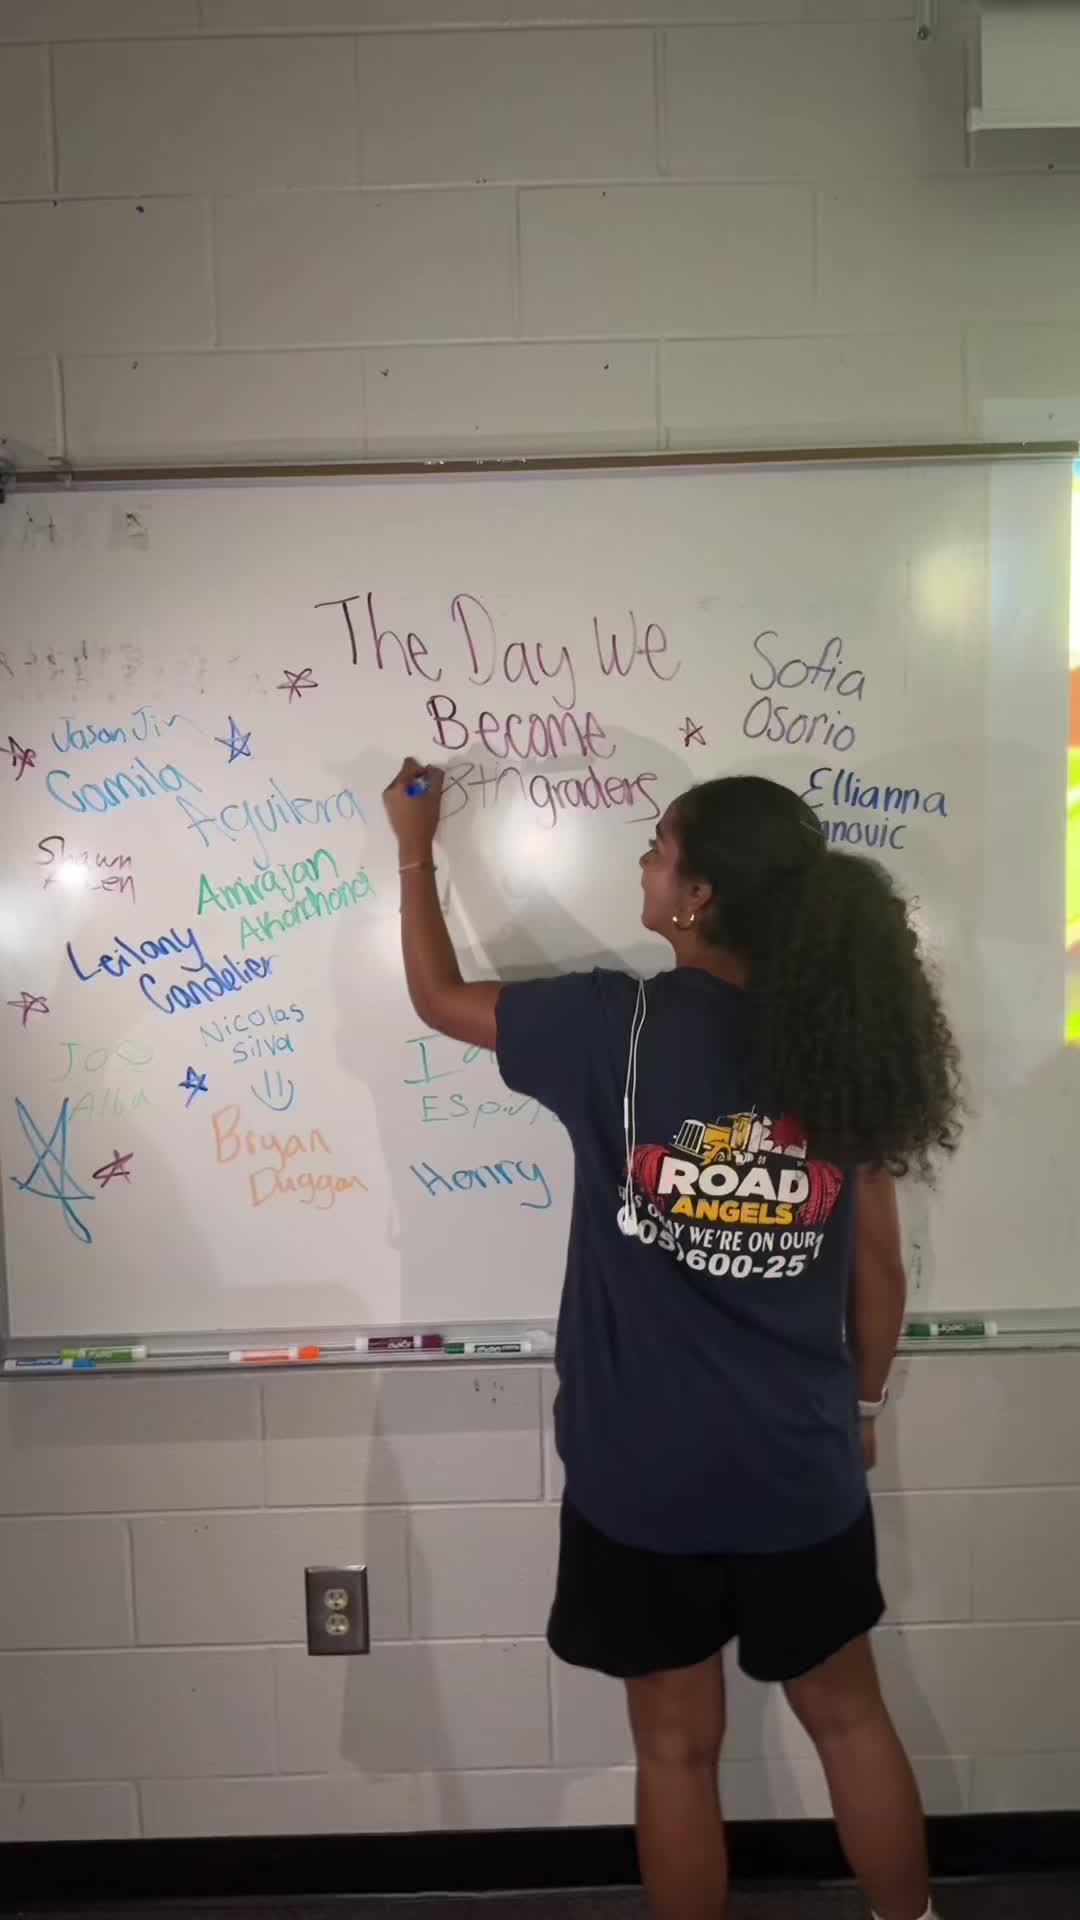 The Day We
Become
8th graders
Sofia
Osorio
Jason Jin
Camila
Aguilera
Ellianna
Shawn
Amirajan
Leilany
Candelier
Nicolas
Silva
Alba
Bryan
Duggan
I
Henry
ROAD
ANGELS
WE'RE ON OUR
600-25